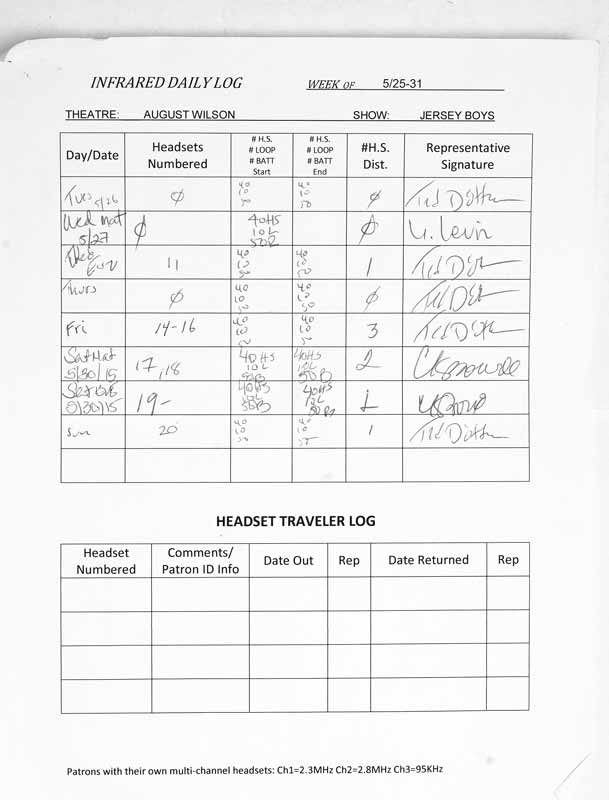 INFRARED DAILY LOG WEEK OF 5/25-31
THEATRE: AUGUST WILSON SHOW: JERSEY BOYS
Day/Date Headsets Numbered # H.S. # LOOP # BATT Start # H.S. # LOOP # BATT End #H.S. Dist. Representative Signature
Tues 5/26 ∅ 40 10 50 40 10 50 ∅ Ted
Wed Mat 5/27 ∅ 40HS 10L 50B ∅ Levin
Eve 11 40 10 50 40 10 50 1 Ted
Thurs ∅ 40 10 50 40 10 50 ∅ Ted
Fri 14-16 40 10 50 40 10 50 3 Ted
Sat Mat 5/30/15 17,18 40HS 10L 50B 40HS 10L 50B 2
Sat Eve 5/30/15 19- 40HS 10L 50B 40HS 10L 50B 1
Sun 20 40 10 50 40 10 50 1 Ted
HEADSET TRAVELER LOG
Headset Numbered Comments/ Patron ID Info Date Out Rep Date Returned Rep
Patrons with their own multi-channel headsets: Ch1=2.3MHz Ch2=2.8MHz Ch3=95KHz